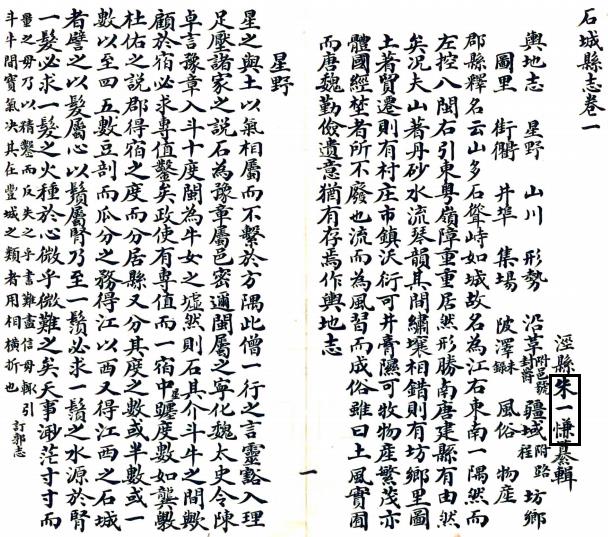 石城縣志卷一
涇縣朱一慊纂輯
輿地志 星野 山川 形勢 沿革附邑號封爵 疆域附路程 坊鄉
圖里 街衢 井埠 集場 陂澤未録 風俗 物産
郡縣釋名云山多石聳峙如城故名為江右東南一隅然而
左控八閩右引東粵嶺障重重居然形勝南唐建縣有由然
矣況夫山著丹砂水流琴韻其間繡壤相錯則有坊鄉里圖
土著貿遷則有村庄市鎮沃衍可井膏隰可牧物産繁茂亦
體國經埜者所不廢也流而為風習而成俗雖曰土風實囿
而唐魏勤儉遺意猶有存焉作輿地志
星野
星之與土以氣相屬而不繫於方隅此僧一行之言靈豁入理
足壓諸家之說石為豫章屬邑密邇閩屬之寧化魏太史令陳
卓言豫章入斗十度閩為牛女之墟然則石其介斗牛之間歟
顧於宿必求專值鑿矣政使有專值而一宿中並躔度數如龔斅
杜佑之說郡得宿之度而分居縣又分其度之數或半數或一
數以至四五數豆剖而瓜分之務得江以西又得江西之石城
者譬之以髮屬心以鬚屬腎乃至一鬚必求一鬚之水源於腎
一髮必求一髮之火種於心微乎微難之矣天事渺茫寸寸而
量之毋乃以精鑿而反失之乎書難盡信毋輒引
斗牛間寶氣決其在豐城之類者用相橫折也 訂郭志
一